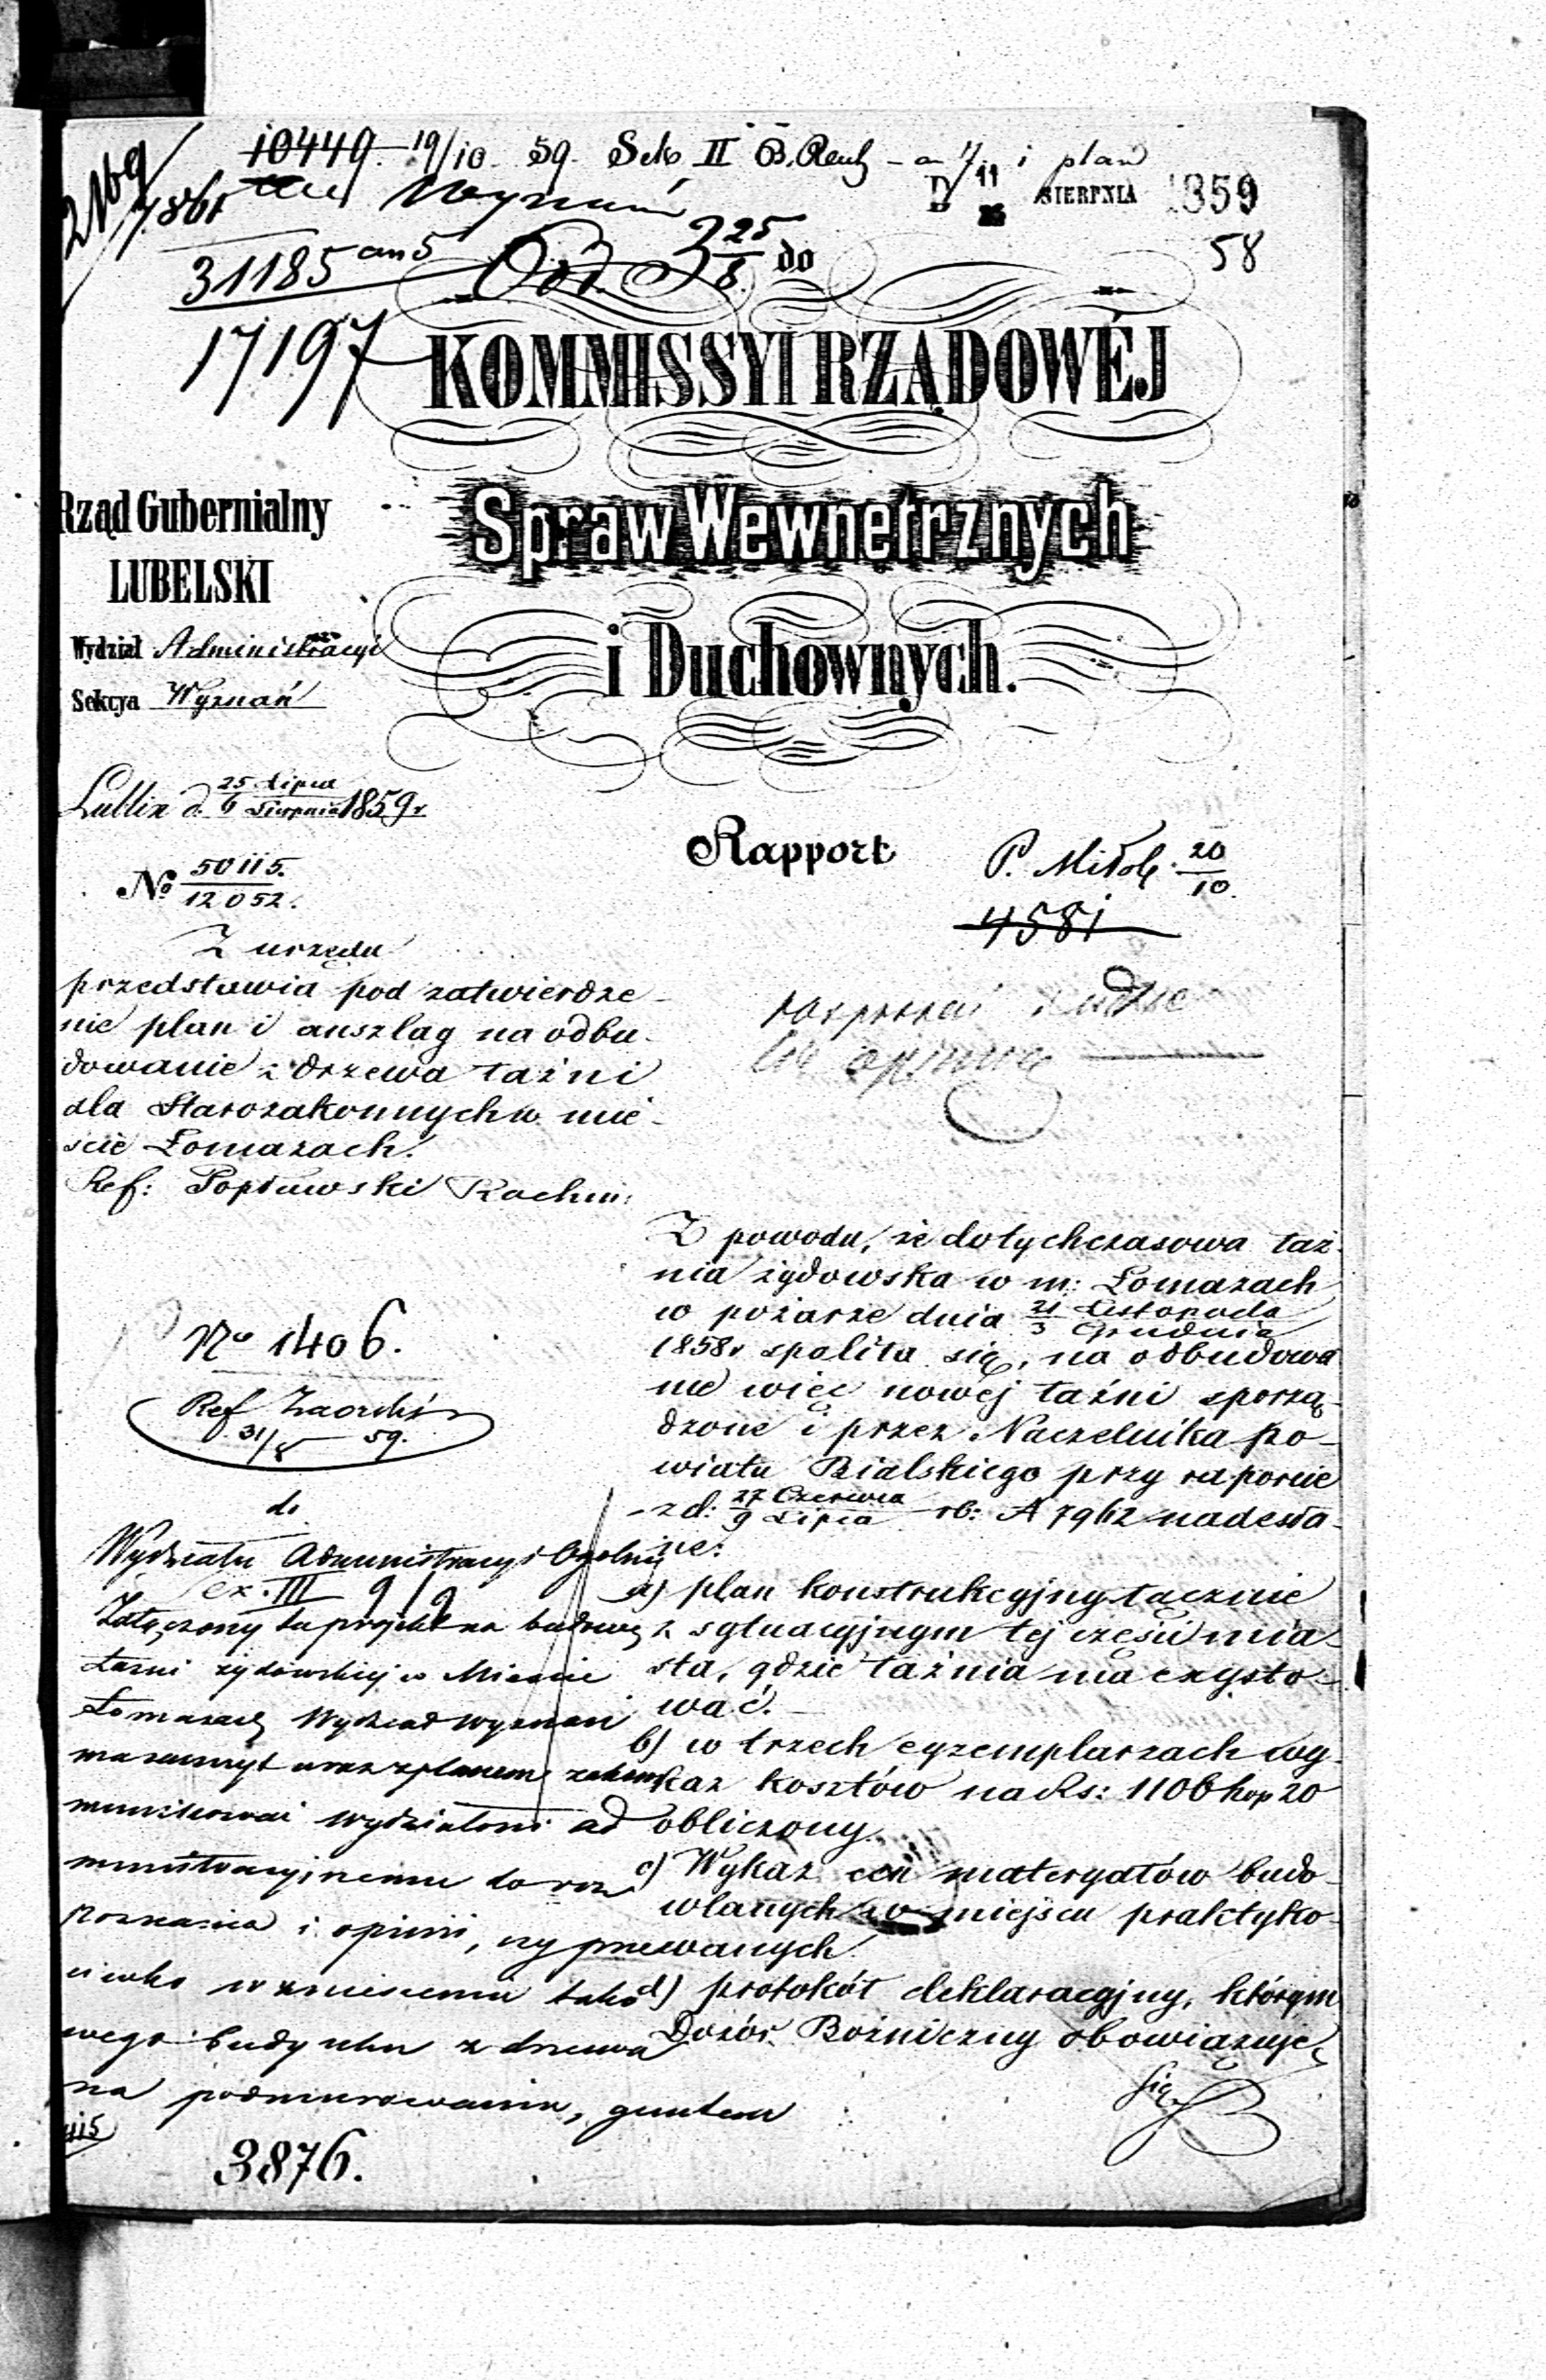 2169
10449. 19/10 59. Sek II B. Reul - an 11 i plan
7861
Wyznań
D/11 SIERPNIA 1859
58
31185 an 5
Odd. 3 25/8 do
17197
KOMMISSYI RZĄDOWÉJ
Spraw Wewnętrznych
i Duchownych.
Rząd Gubernialny
LUBELSKI
Wydział Administracyi
Sekcya Wyznań
Lublin d. 25 Lipca / 6 Sierpnia 1859 r
No 50115. / 12052.
Rapport
P. Mitol. 20/10.
4581
Z urzędu
przedstawia pod zatwierdze-
nie plan i anszlag na odbu-
dowanie z drzewa łaźni
dla Starozakonnych w mie-
ście Łomazach.
Ref: Popławski Rachm:
No 1406.
Ref
31/8 59.
do
Wydziału Administracyi Ogolnej
Załączony tu projekt na budowę
Łazni żydowskiej w Miescie
Łomazach Wydział Wyznań
ma zaszczyt wraz z planem zakom
munikować Wydziałowi ad
ministracyjnemu do roz
poznania i opinii, czy prze
ciwko wzniesieniu tako
wego budynku z drzewa
na podmurowaniu, guntem
3876.
Z powodu, że dotychczasowa łaź-
nia żydowska w m: Łomazach
w pożarze dnia 21 Listopada / 3 Grudnia
1858 r spaliła się, na odbudowa
nie więc nowéj łaźni sporzą-
dzone i przez Naczelnika Po-
wiatu Bialskiego przy raporcie
z d: 27 Czerwca / 9 Lipca rb: N 7962 nadesła-
ne:
a) plan konstrukcyjny łącznie
z sytuacyjnym tej części mia-
sta, gdzie łaźnia ma exysto-
wać.
b) w trzech egzemplarzach wy-
kaz kosztów na Rs: 1106 kop 20
obliczony.
c) Wykaz cen materyałów budo-
wlanych w miejscu praktyko-
wanych.
d) protokół deklaracyjny, którym
Dozór Bożniczny obowiązuje
się